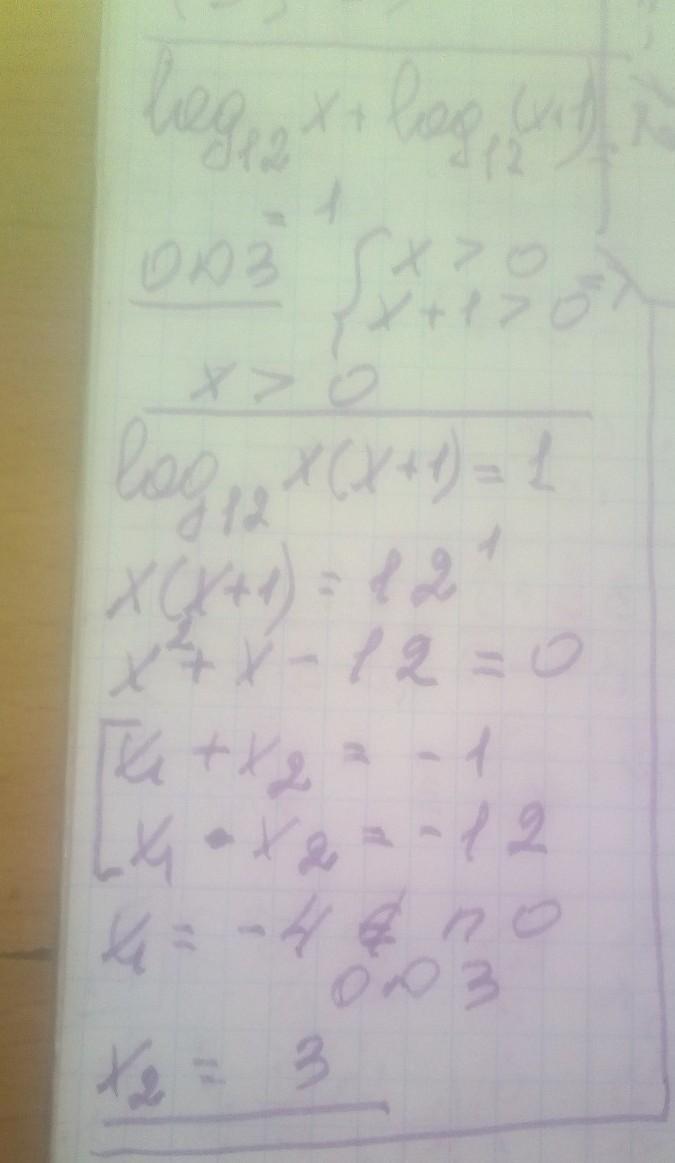 log₁₂ x + log₁₂ (x+1)
= 1
ОДЗ { x > 0
x + 1 > 0 =>
x > 0
log₁₂ x(x+1) = 1
x(x+1) = 12¹
x² + x - 12 = 0
[ x₁ + x₂ = -1
x₁ • x₂ = -12
x₁ = -4 ∉ по
ОДЗ
x₂ = 3